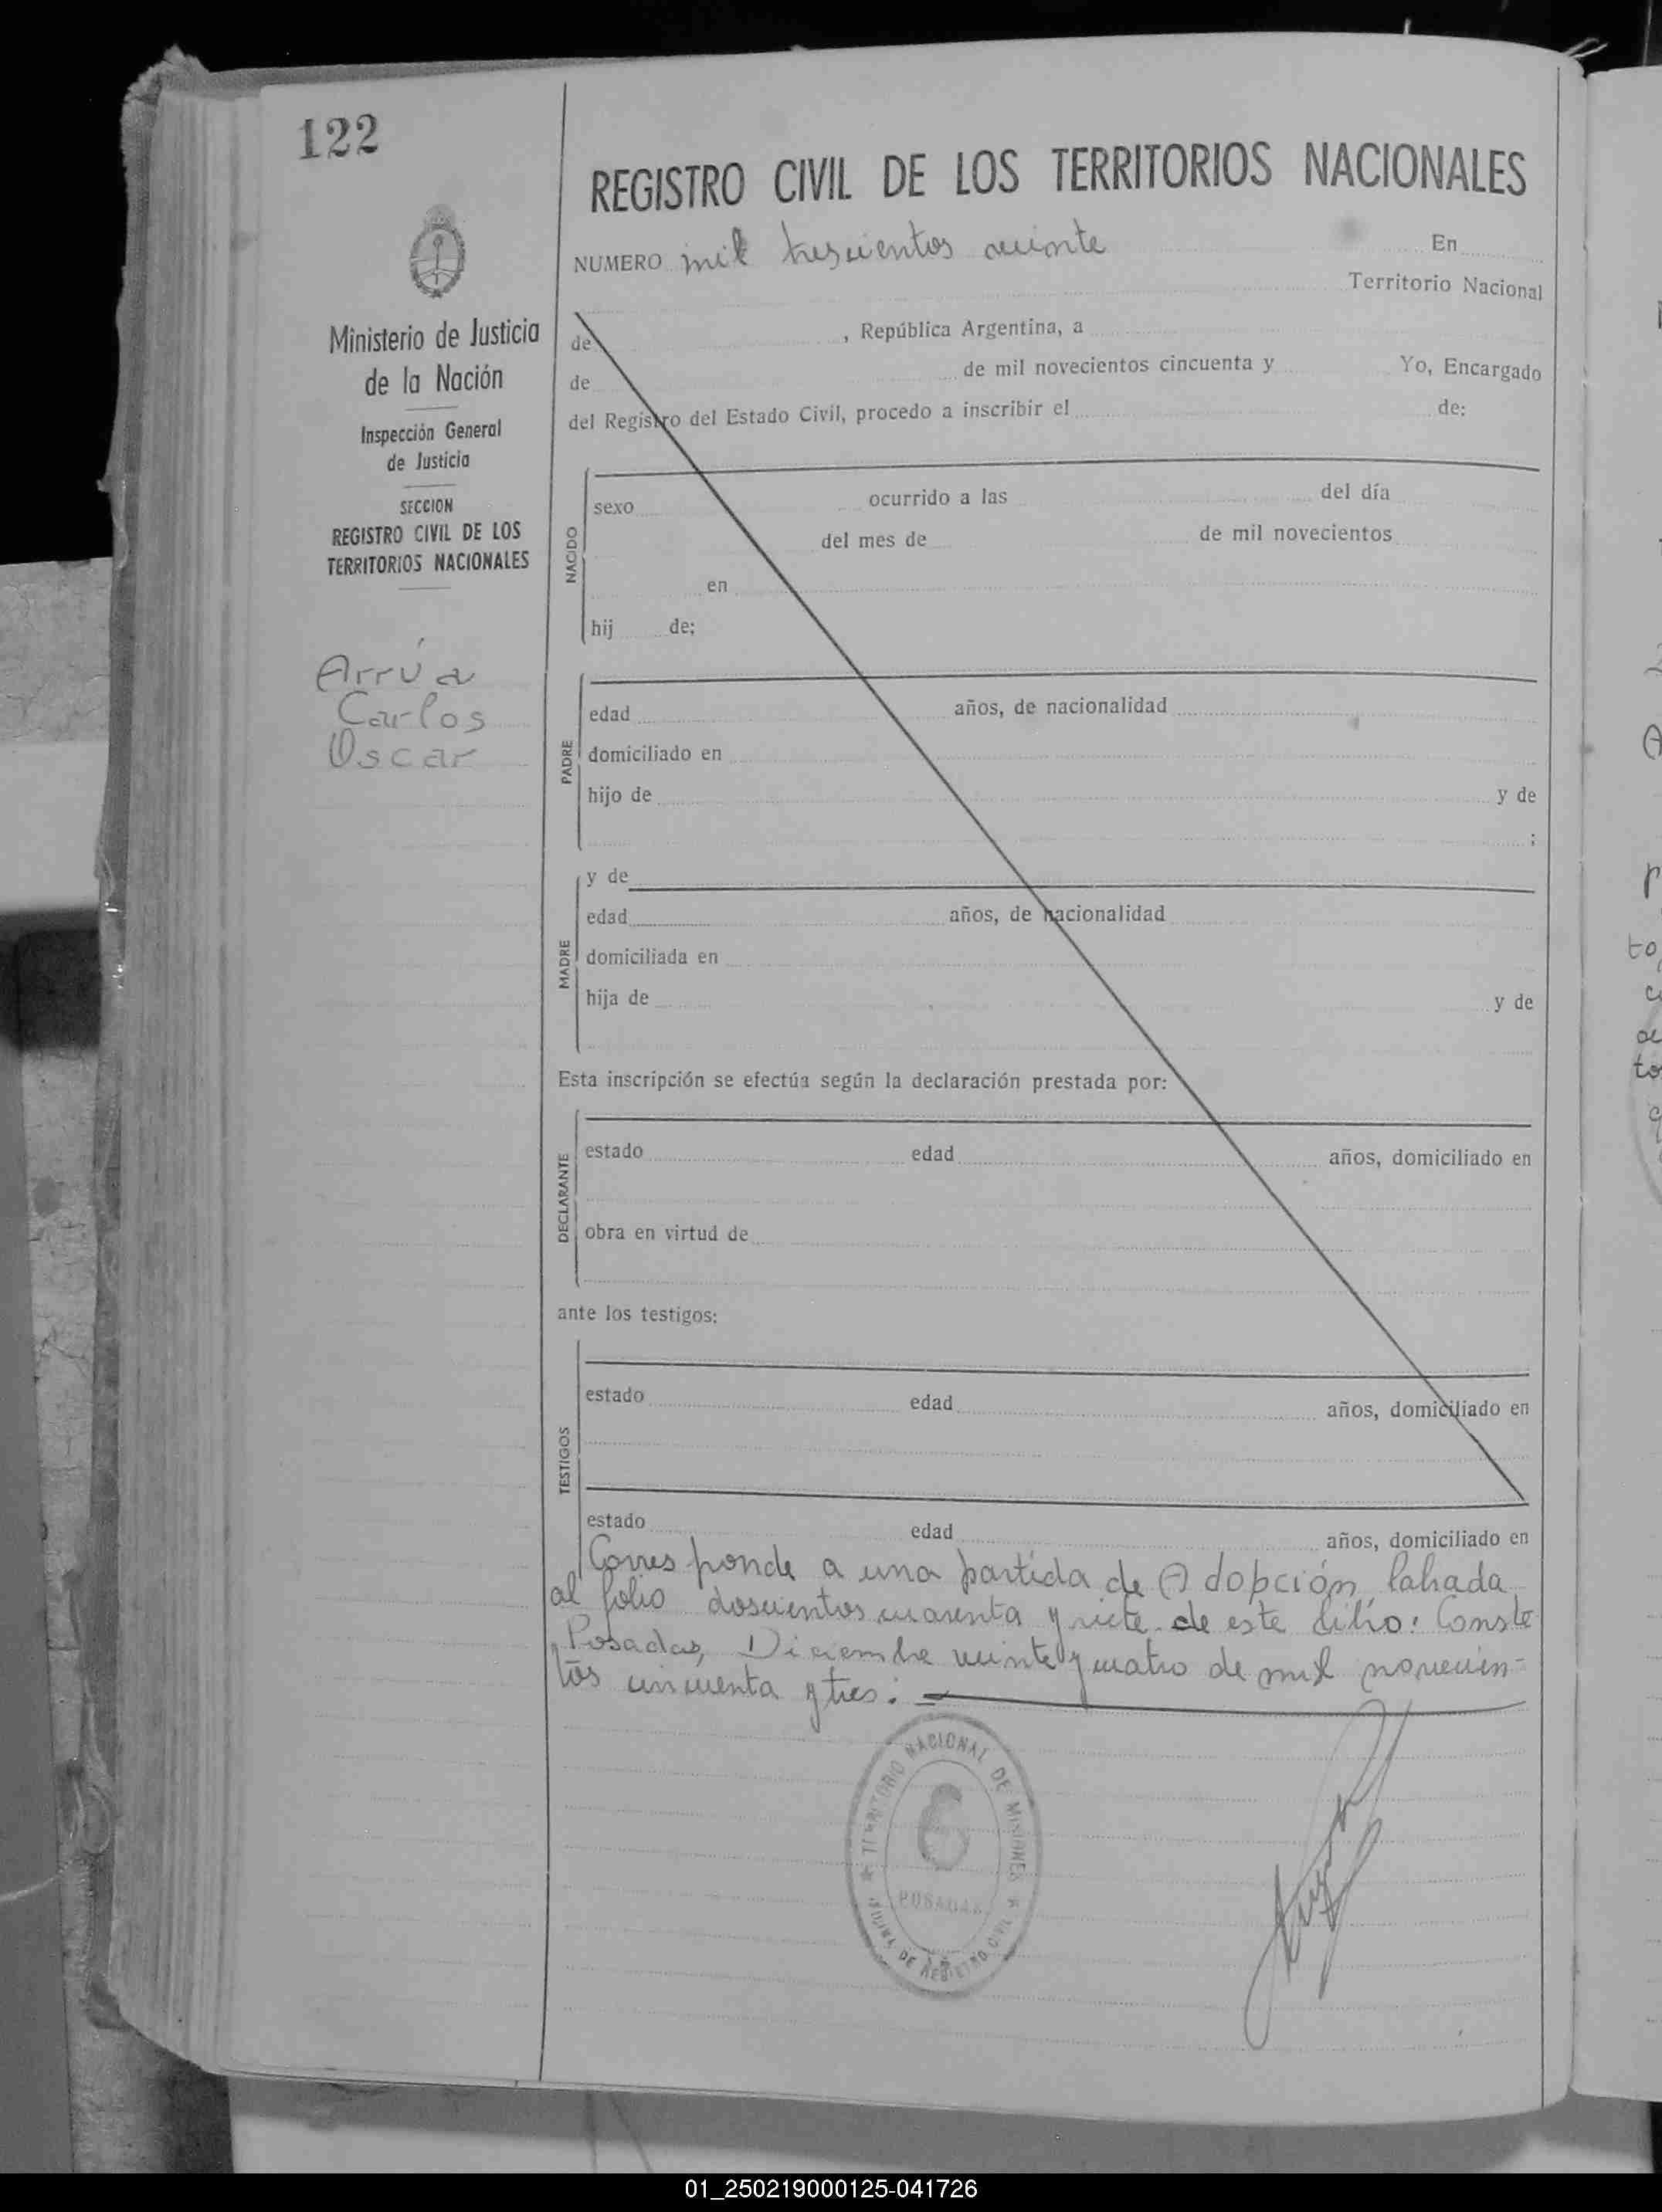 122
REGISTRO CIVIL DE LOS TERRITORIOS NACIONALES
NUMERO mil trescientos veinte En
Territorio Nacional
de , República Argentina, a
de de mil novecientos cincuenta y Yo, Encargado
del Registro del Estado Civil, procedo a inscribir el de:
Ministerio de Justicia
de la Nación
Inspección General
de Justicia
SECCION
REGISTRO CIVIL DE LOS
TERRITORIOS NACIONALES
Arrúa
Carlos
Oscar
NACIDO
sexo ocurrido a las del día
del mes de de mil novecientos
en
hij de;
PADRE
edad años, de nacionalidad
domiciliado en
hijo de y de
;
MADRE
y de
edad años, de nacionalidad
domiciliada en
hija de y de
Esta inscripción se efectúa según la declaración prestada por:
DECLARANTE
estado edad años, domiciliado en
obra en virtud de
ante los testigos:
TESTIGOS
estado edad años, domiciliado en
estado edad años, domiciliado en
Corresponde a una partida de Adopción labrada
al folio doscientos cuarenta y siete de este libro: Conste
Posadas, Diciembre veinte y cuatro de mil novecien-
tos cincuenta y tres:
TERRITORIO NACIONAL DE MISIONES
POSADAS
OFICINA DE REGISTRO CIVIL
01_250219000125-041726